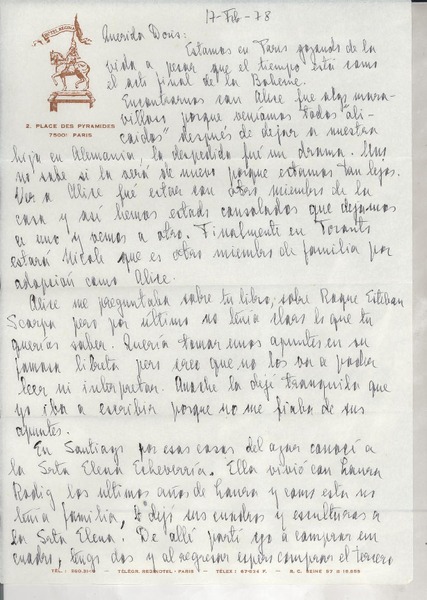 17-Feb-78
HOTEL REGINA
2. PLACE DES PYRAMIDES
75001 PARIS
Querida Doris:
Estamos en Paris gozando de la
vida a pesar que el tiempo está como
el acto final de la Boheme.
Encontrarnos con Alice fue algo mara-
villoso porque veníamos todos "ali-
caidos" después de dejar a nuestra
hija en Alemania, la despedida fué un drama. Uno
no sabe si la verá de nuevo porque estamos tan lejos.
Ver a Alice fué estar con otro miembro de la
casa y así hemos estado consolados que dejamos
a uno y vemos a otro. Finalmente en Toronto
estará Nicole que es otro miembro de familia por
adopción como Alice.
Alice me preguntaba sobre tu libro, sobre Roque Esteban
Scarpa pero por último no tenía claro lo que tu
querías saber. Quería tomar unos apuntes en su
famosa libreta pero creo que no los va a poder
leer ni interpretar. Anoche la dejé tranquila que
yo iba a escribir porque no me fiaba de sus
apuntes.
En Santiago por esas cosas del azar conocí a
la Srta Elena Echeverría. Ella vivió con Laura
Rodig los ultimos años de Laura y como esta no
tenía familia, le dejó sus cuadros y esculturas a
la Srta Elena. De allí partí yo a comprar un
cuadro, tengo dos y al regresar espero comprar el tercero
TÉL.: 260.31-10 — TÉLÉGR. REGINOTEL-PARIS — TÉLEX: 67-0.34 F. — R. C. SEINE 57 B 15.653